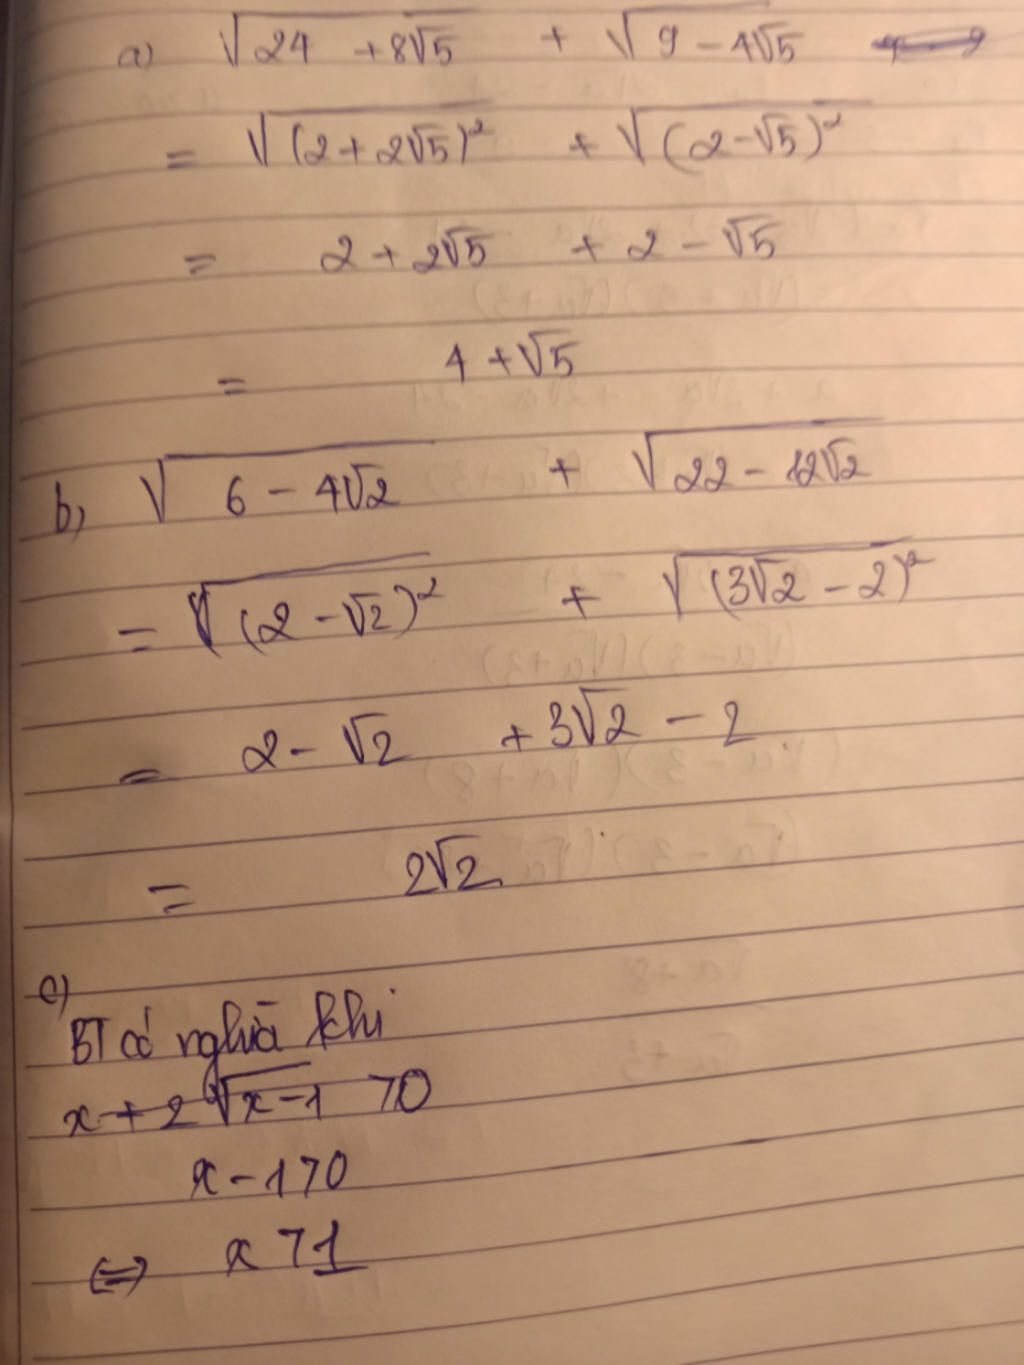 a) √(24 + 8√5) + √(9 - 4√5)
= √((2 + 2√5)²) + √((2 - √5)²)
= 2 + 2√5 + 2 - √5
= 4 + √5
b) √(6 - 4√2) + √(22 - 12√2)
= √((2 - √2)²) + √((3√2 - 2)²)
= 2 - √2 + 3√2 - 2
= 2√2
c)
BT có nghĩa khi
x + 2√(x-1) > 0
x - 1 > 0
⇔ x > 1